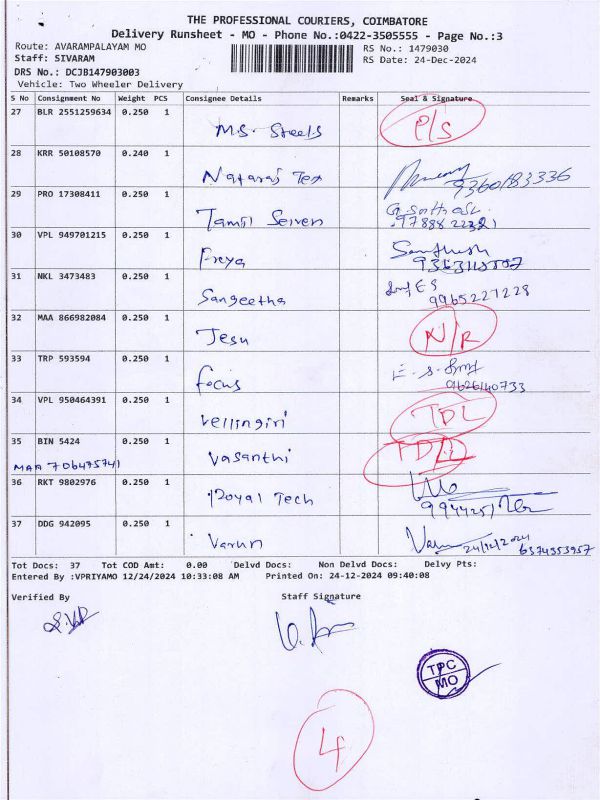 THE PROFESSIONAL COURIERS, COIMBATORE
Delivery Runsheet - MO - Phone No.:0422-3505555 - Page No.:3
Route: AVARAMPALAYAM MO RS No.: 1479030
Staff: SIVARAM RS Date: 24-Dec-2024
DRS No.: DCJB147903003
Vehicle: Two Wheeler Delivery
S No Consignment No Weight PCS Consignee Details Remarks Seal & Signature
27 BLR 2551259634 0.250 1 M.S. Steels P/S
28 KRR 50108570 0.240 1 Nataraj Tex 9360183336
29 PRO 17308411 0.250 1 Tamil Seiven
30 VPL 949701215 0.250 1 Freya Santhosh
31 NKL 3473483 0.250 1 Sangeetha 9965227228
32 MAA 866982084 0.250 1 Jesu N/R
33 TRP 593594 0.250 1 focus 9626140733
34 VPL 950464391 0.250 1 vellingiri TDL
35 BIN 5424 0.250 1 Vasanthi
MAA 706475741
36 RKT 9802976 0.250 1 Royal Tech
37 DDG 942095 0.250 1 Varun 24/12/2024 6374553957
Tot Docs: 37 Tot COD Amt: 0.00 Delvd Docs: Non Delvd Docs: Delvy Pts:
Entered By :VPRIYAMO 12/24/2024 10:33:08 AM Printed On: 24-12-2024 09:40:08
Verified By Staff Signature
TPC
MO
4